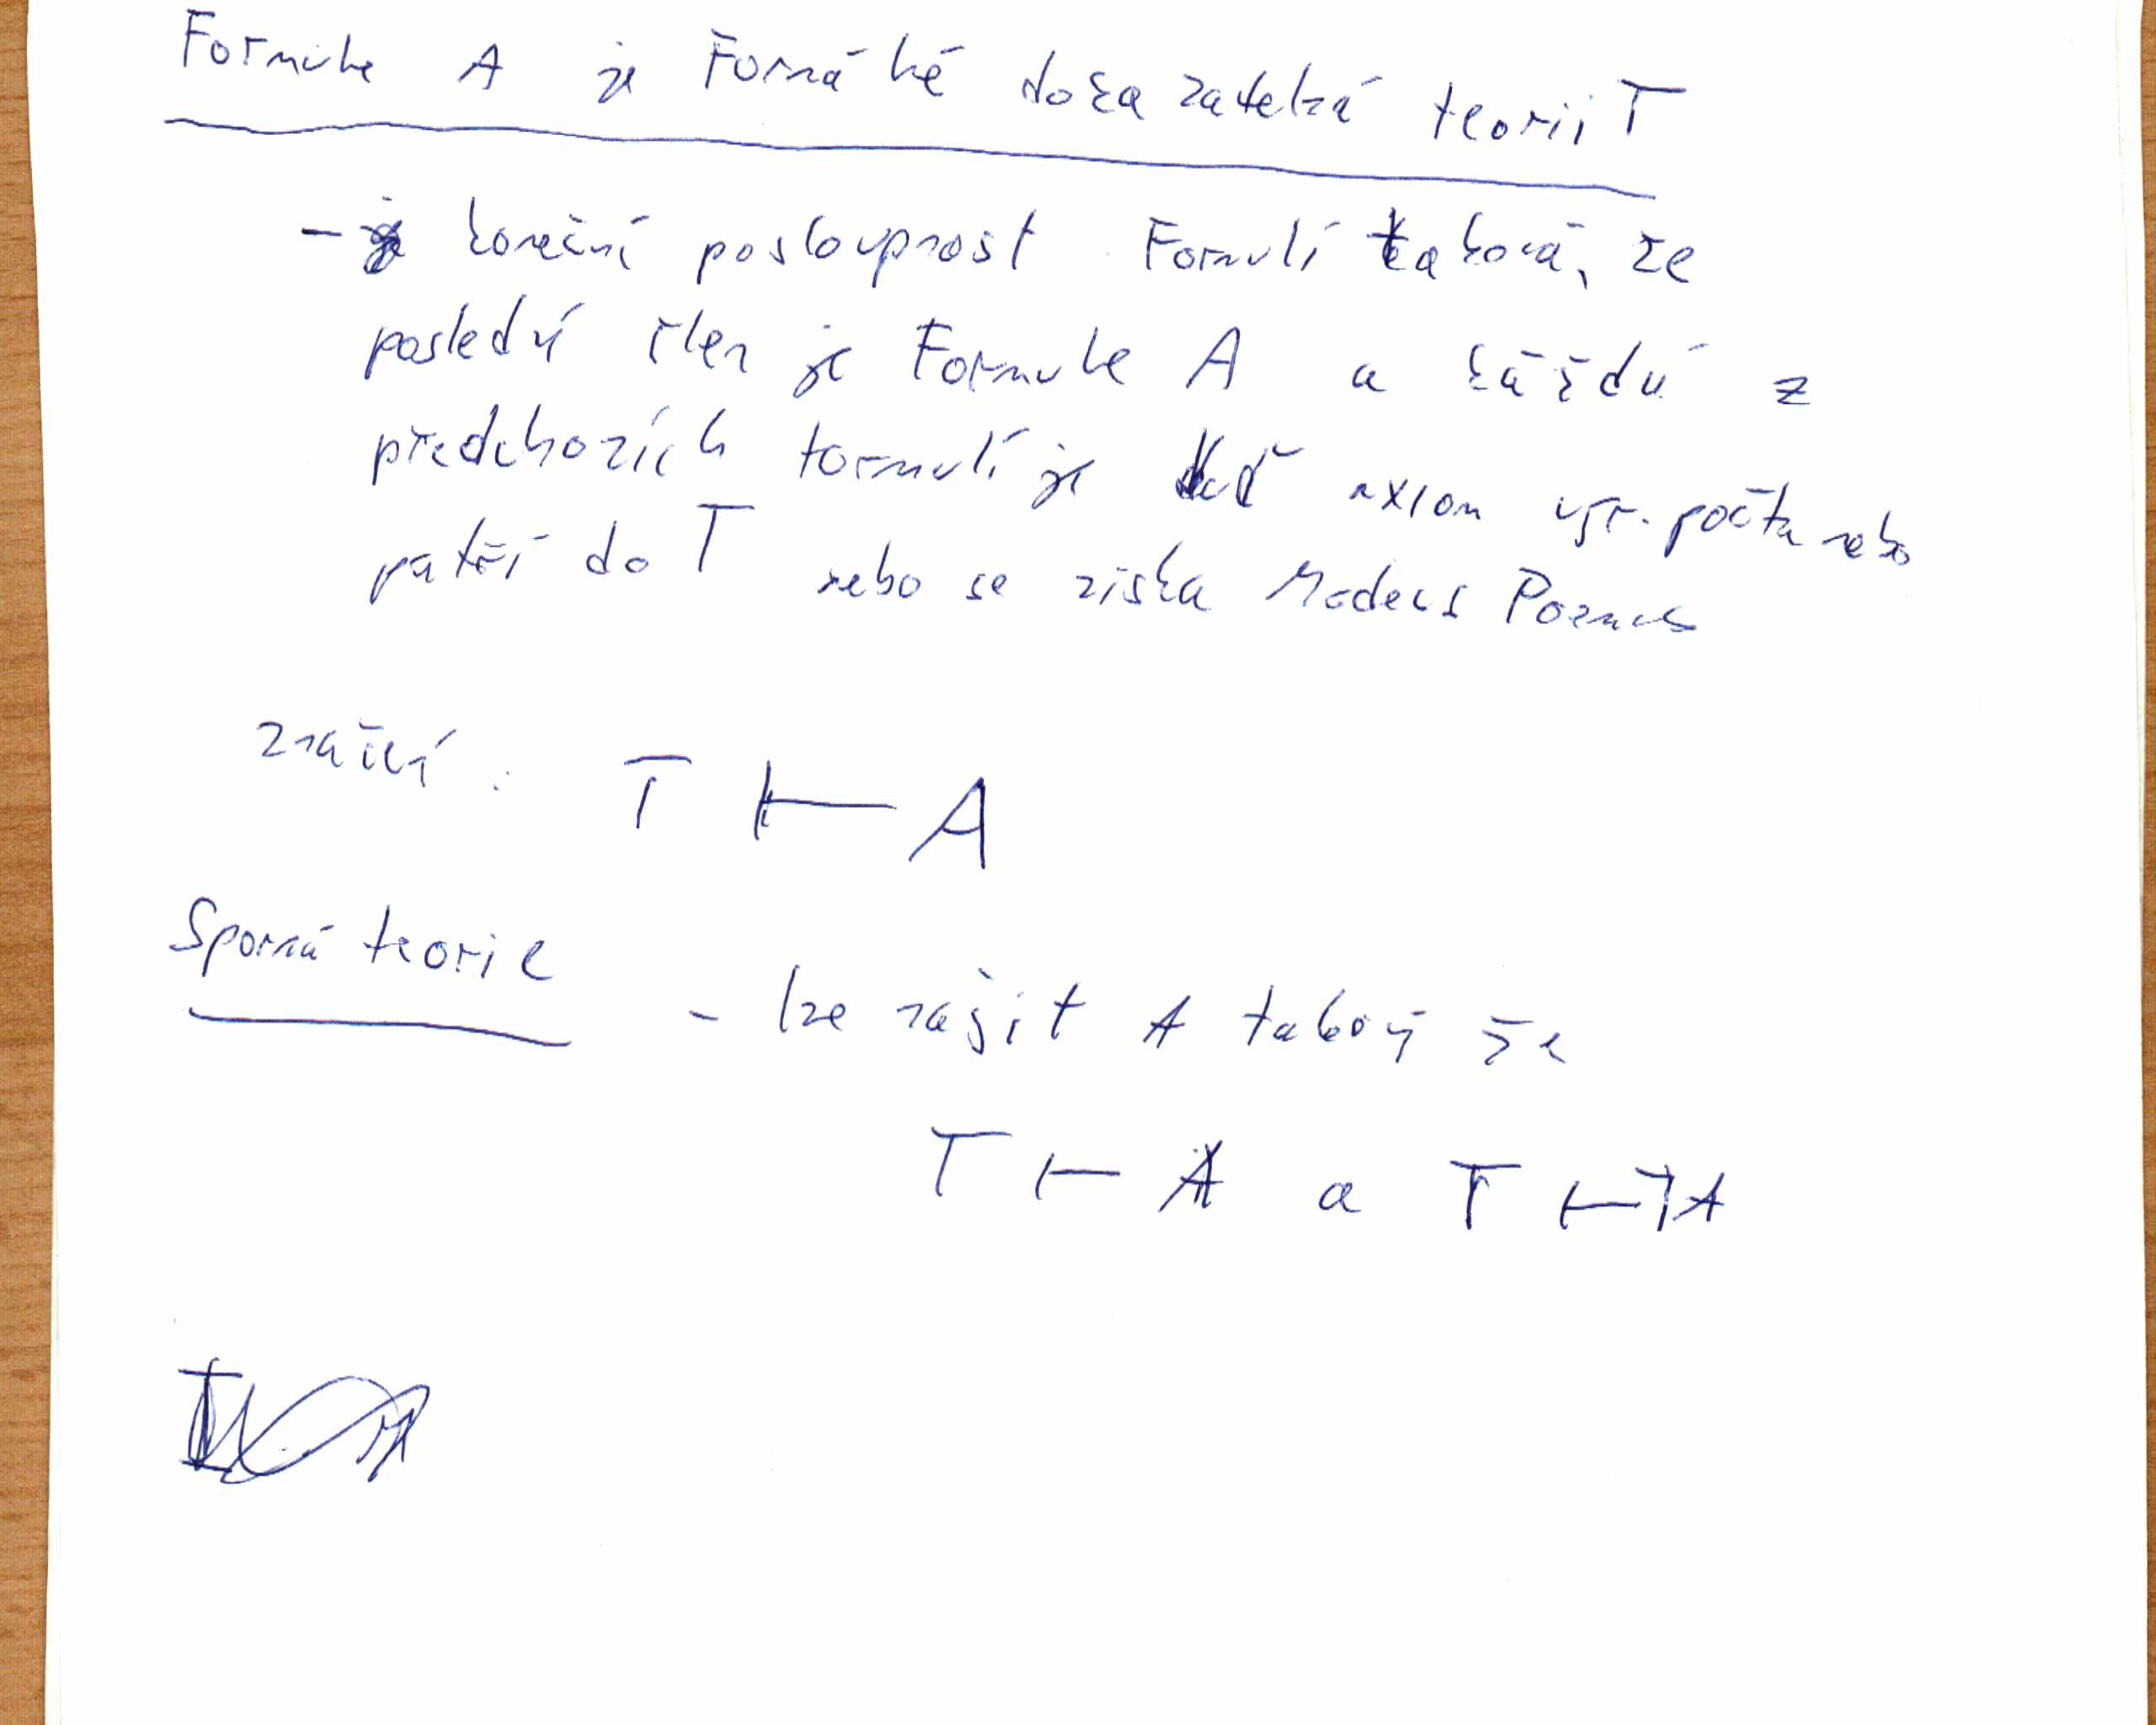 Formule A je Formálně dokazatelná teorii T
- je konečná posloupnost Formulí taková, že
poslední člen je Formule A a každá z
předchozích formulí je buď axiom výr. počtu nebo
patří do T nebo se získa Modeus Poenus
značení : T ⊢ A
Sporná teorie
- lze najít A takový že
T ⊢ A a T ⊢ ¬A